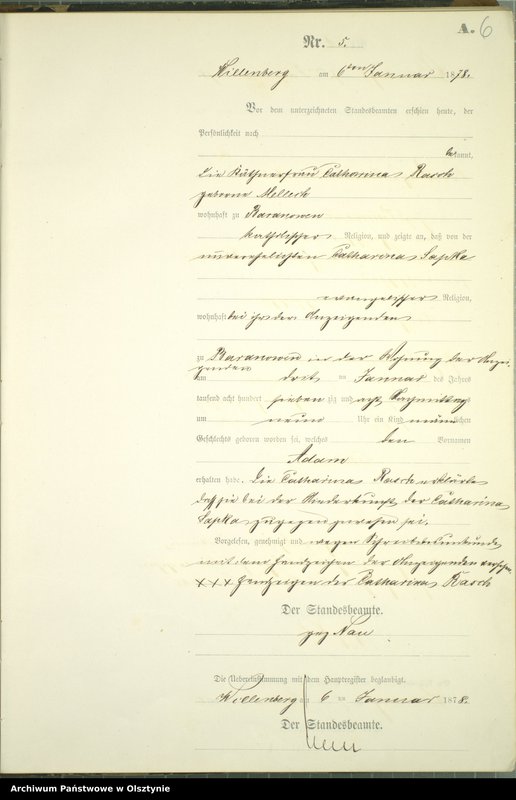 A. 6
Nr. 5.
Willenberg am 6ten Januar 1878.
Vor dem unterzeichneten Standesbeamten erschien heute, der
Persönlichkeit nach
bekannt,
die Käthnerfrau Catharina Rasch
geborne Mellech
wohnhaft zu Baranowen
katholischer Religion, und zeigte an, daß von der
unverehelichten Catharina Sapka
evangelischer Religion,
wohnhaft bei ihr der Anzeigenden
zu Baranowen in der Wohnung der Anzei-
genden
am drei ten Januar des Jahres
tausend acht hundert sieben zig und acht Nachmittags
um neun Uhr ein Kind männlichen
Geschlechts geboren worden sei, welches den Vornamen
Adam
erhalten habe. Die Catharina Rasch erklärte
daß sie bei der Niederkunft der Catharina
Sapka zugegen gewesen sei.
Vorgelesen, genehmigt und wegen Schreibensunkunde
mit dem Handzeichen der Anzeigenden versehen.
XXX Handzeichen der Catharina Rasch
Der Standesbeamte.
gez Nau
Die Uebereinstimmung mit dem Hauptregister beglaubigt.
Willenberg am 6 ten Januar 1878.
Der Standesbeamte.
Archiwum Państwowe w Olsztynie